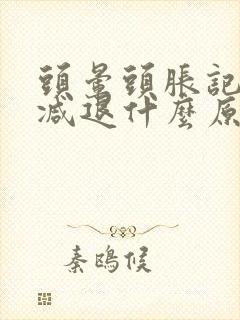 頭暈頭脹記
減退什麼原
秦鴎侯